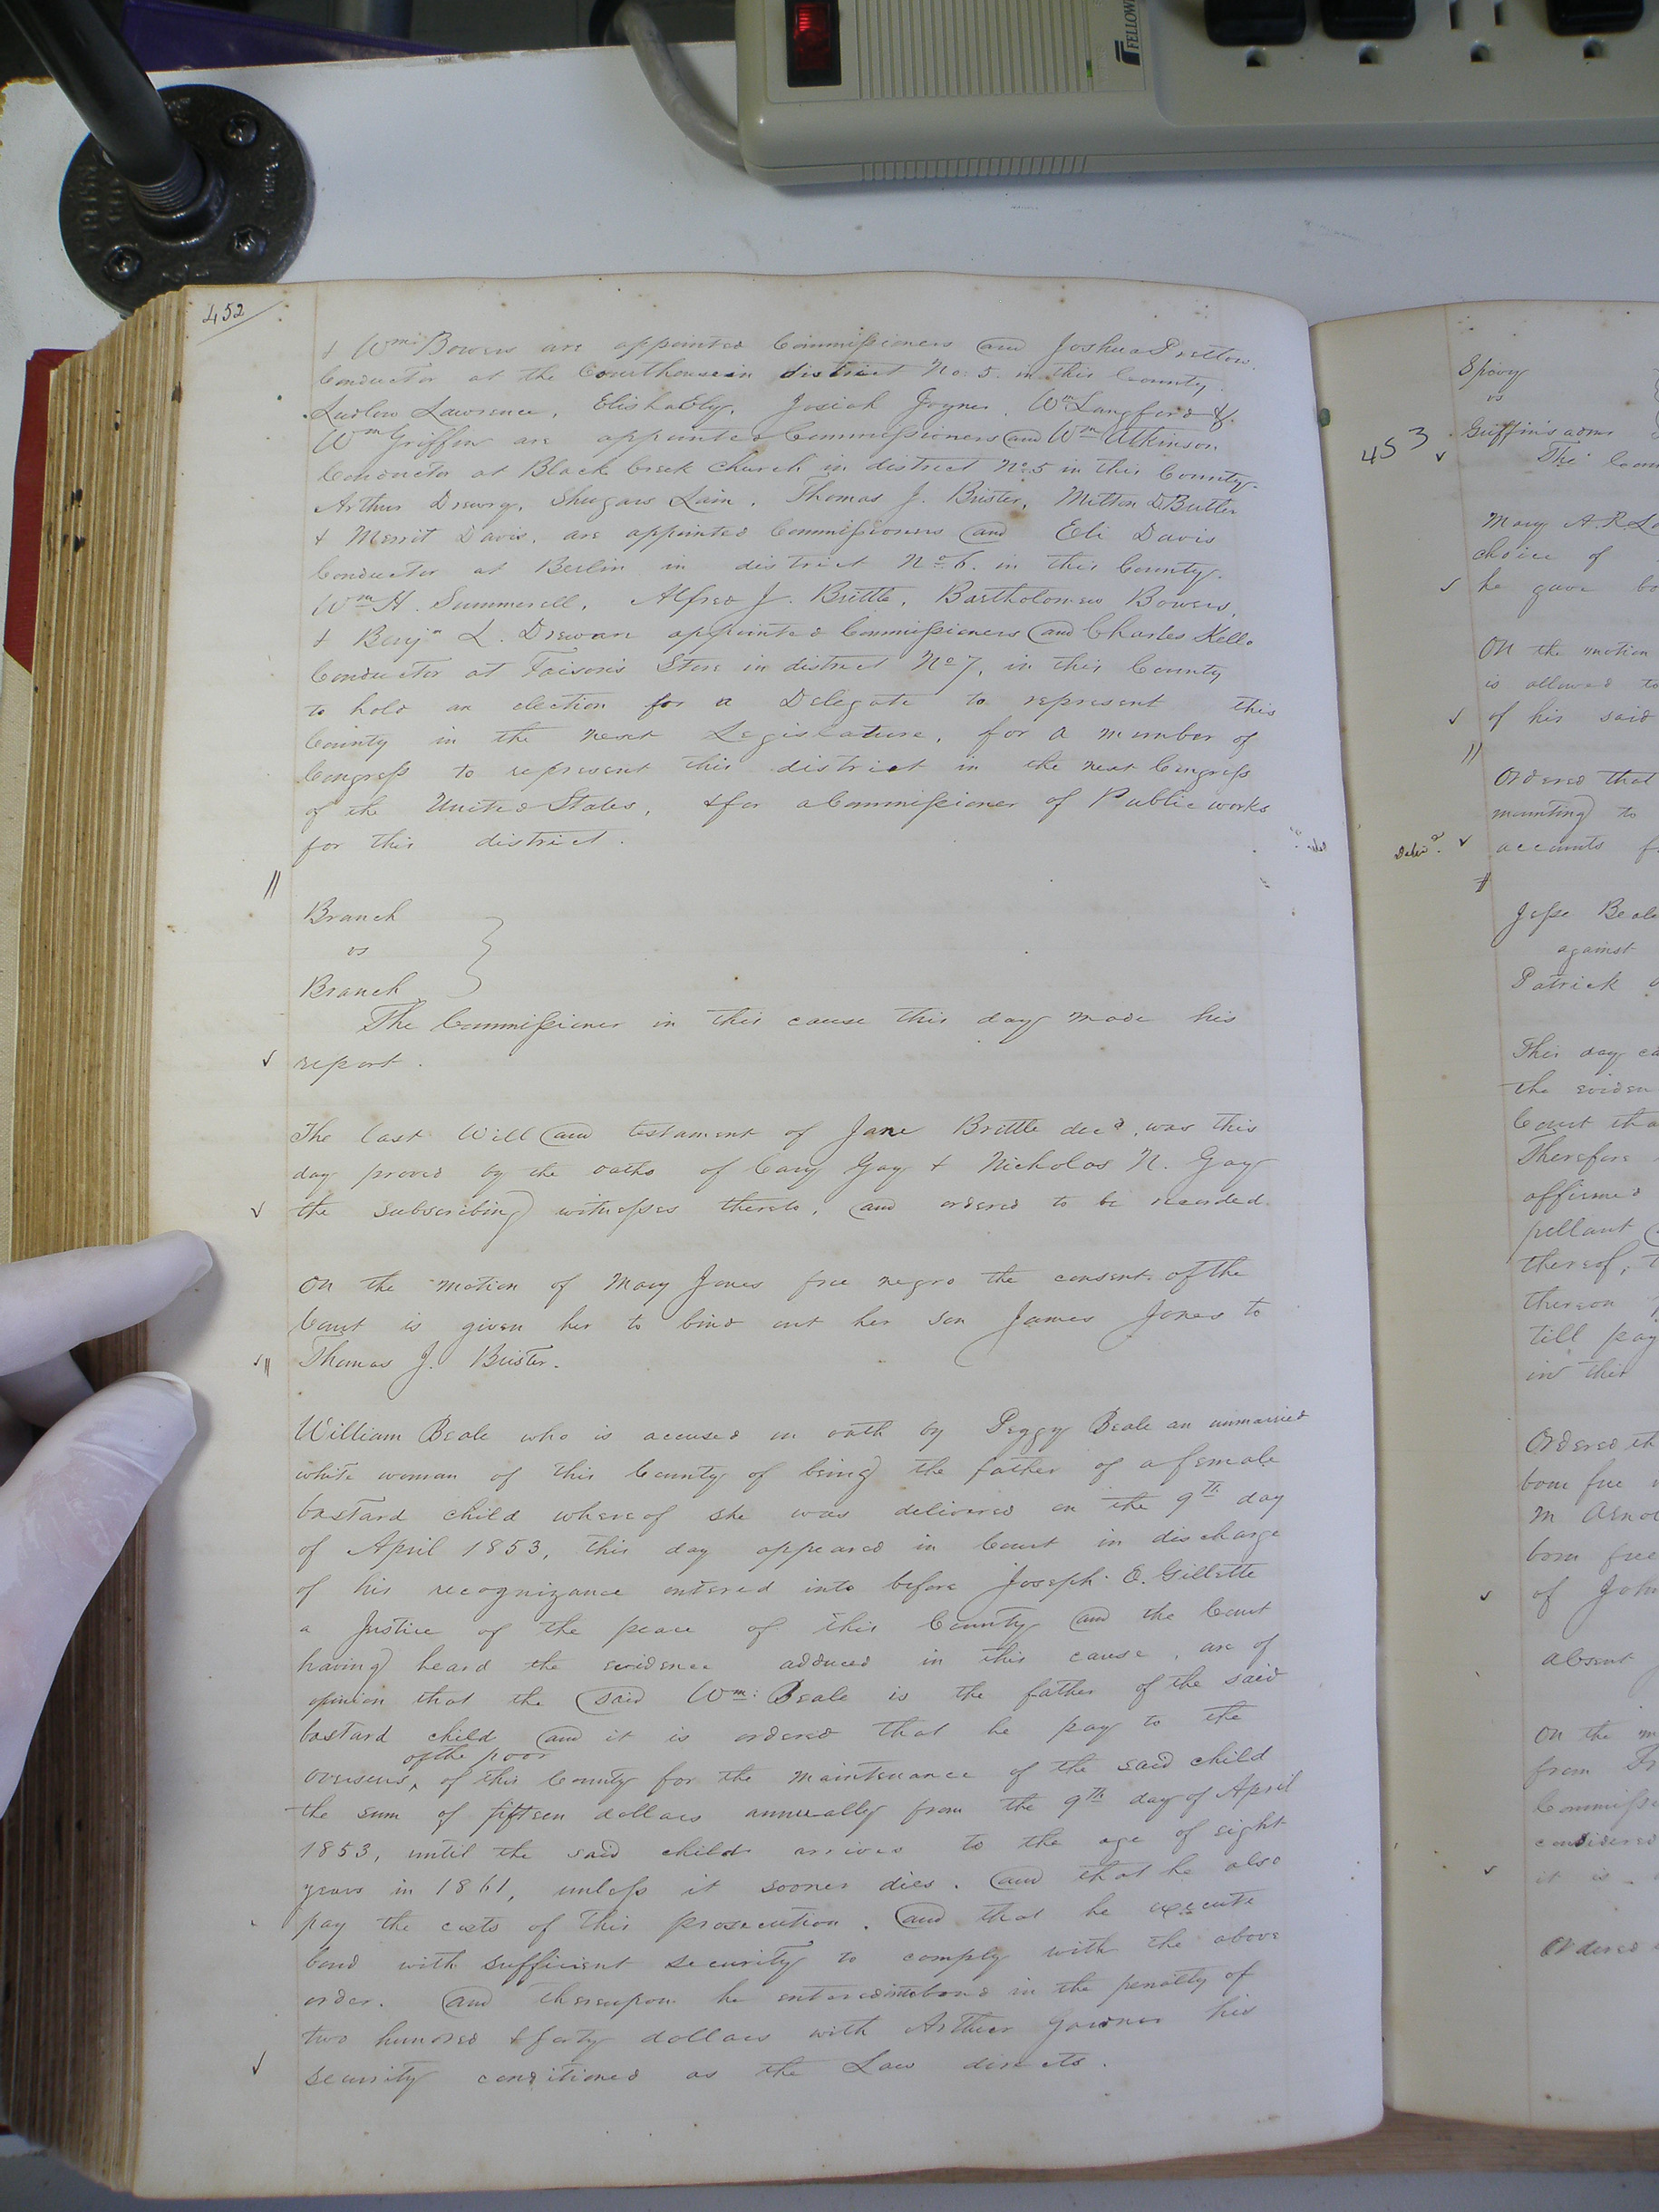 452
& Wm Bowers are appointed Commissioners and Joshua Pretlow
Conductor at the Courthouse in district No. 5. in this County.
Ludlow Lawrence, Elisha Ely, Josiah Joyner, Wm Langford &
Wm Griffin are appointed Commissioners and Wm Atkinson
Conductor at Black Creek Church in district No 5 in this County.
Arthur Drewry, Shugars Lain, Thomas J. Brister, Milton D Butler
& Merrit Davis, are appointed Commissioners and Eli Davis
Conductor at Berlin in district No 6. in this County.
Wm H. Summerell, Alfred J. Brittle, Bartholomew Bowers,
& Benjn L. Drew are appointed Commissioners and Charles Kello
Conductor at Faison's Store in district No 7, in this County
to hold an election for a Delegate to represent this
County in the next Legislature, for a member of
Congress to represent this district in the next Congress
of the United States, & for a Commissioner of Public works
for this district.
Branch
vs
Branch
The Commissioner in this cause this day made his
report.
The last Will and testament of Jane Brittle decd, was this
day proved by the oaths of Cary Gay & Nicholas N. Gay
the subscribing witnesses thereto, and ordered to be recorded.
On the motion of Mary Jones free negro the consent of the
Court is given her to bind out her son James Jones to
Thomas J. Brister.
William Beale who is accused on oath by Peggy Beale an unmarried
white woman of this County of being the father of a female
bastard child whereof she was delivered on the 9th day
of April 1853, this day appeared in Court in discharge
of his recognizance entered into before Joseph E. Gillette
a Justice of the peace of this County and the Court
having heard the evidence adduced in this cause, are of
opinion that the said Wm: Beale is the father of the said
bastard child and it is ordered that he pay to the
of the poor
overseers of this County for the maintenance of the said child
the sum of fifteen dollars annually from the 9th day of April
1853, until the said child arrives to the age of eight
years in 1861, unless it sooner dies. and that he also
pay the costs of this prosecution. and that he execute
bond with sufficient security to comply with the above
order. and thereupon he entered into bond in the penalty of
two hundred & forty dollars with Arthur Gardner his
security conditioned as the Law directs.
453
Spivy
vs
Griffin's admr
The
Mary A. R
choice of
he gave
On the motion
is allowed to
of his said
Ordered that
mounting to
accounts
Jesse Beal
against
Patrick
This day
the
Court tha
Therefore
affirmed
pellant
thereof,
thereon
till pay
in this
Ordered th
born free
born free
of John
absent
On the m
from
considered
it is
Ordered
FELLOW